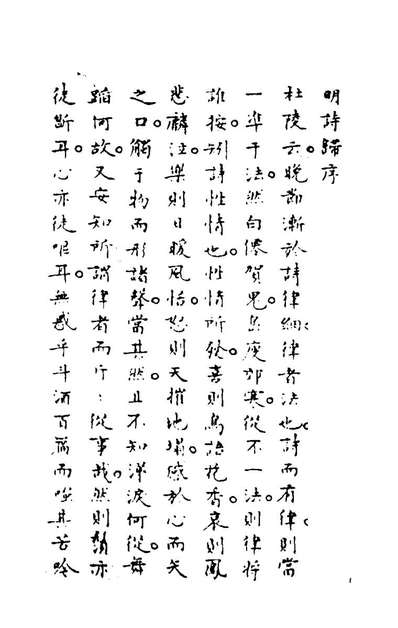 明詩歸序
杜陵云。晚節漸於詩律細、律者法也、詩而有律、則當
一準于法。然白僊賀鬼。島瘦郊寒。從不一法。則律將
誰按。別詩性情也。性情所發。喜則鳥語花香。哀則鳳
悲麟泣。樂則日暖風怡。怒則天摧地塌。感於心而矢
之口。觸于物而形諸聲。當其然。且不知涕淚何從。舞
蹈何故。又安知所謂律者而斤〻從事哉。然則亦
徒斷耳。心亦徒嘔耳。無惑乎斗酒百篇而嗤其苦吟